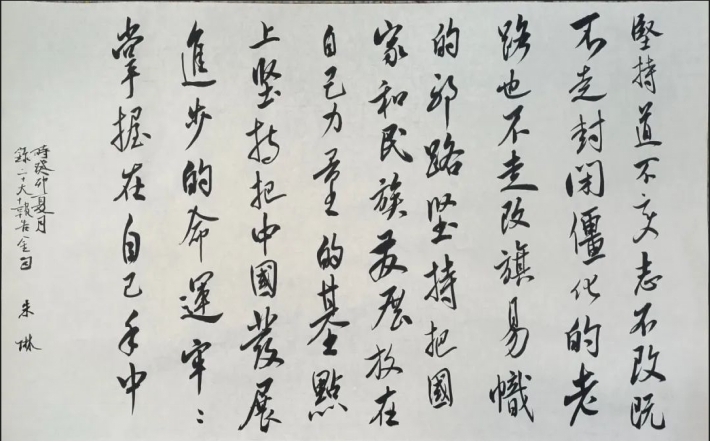 堅持道不变志不改既
不走封闭僵化的老
路也不走改旗易幟
的邪路坚持把國
家和民族发展放在
自己力量的基點
上坚持把中國發展
進步的命運牢〻
掌握在自己手中
時癸卯夏月
錄二十大報告金句
朱琳